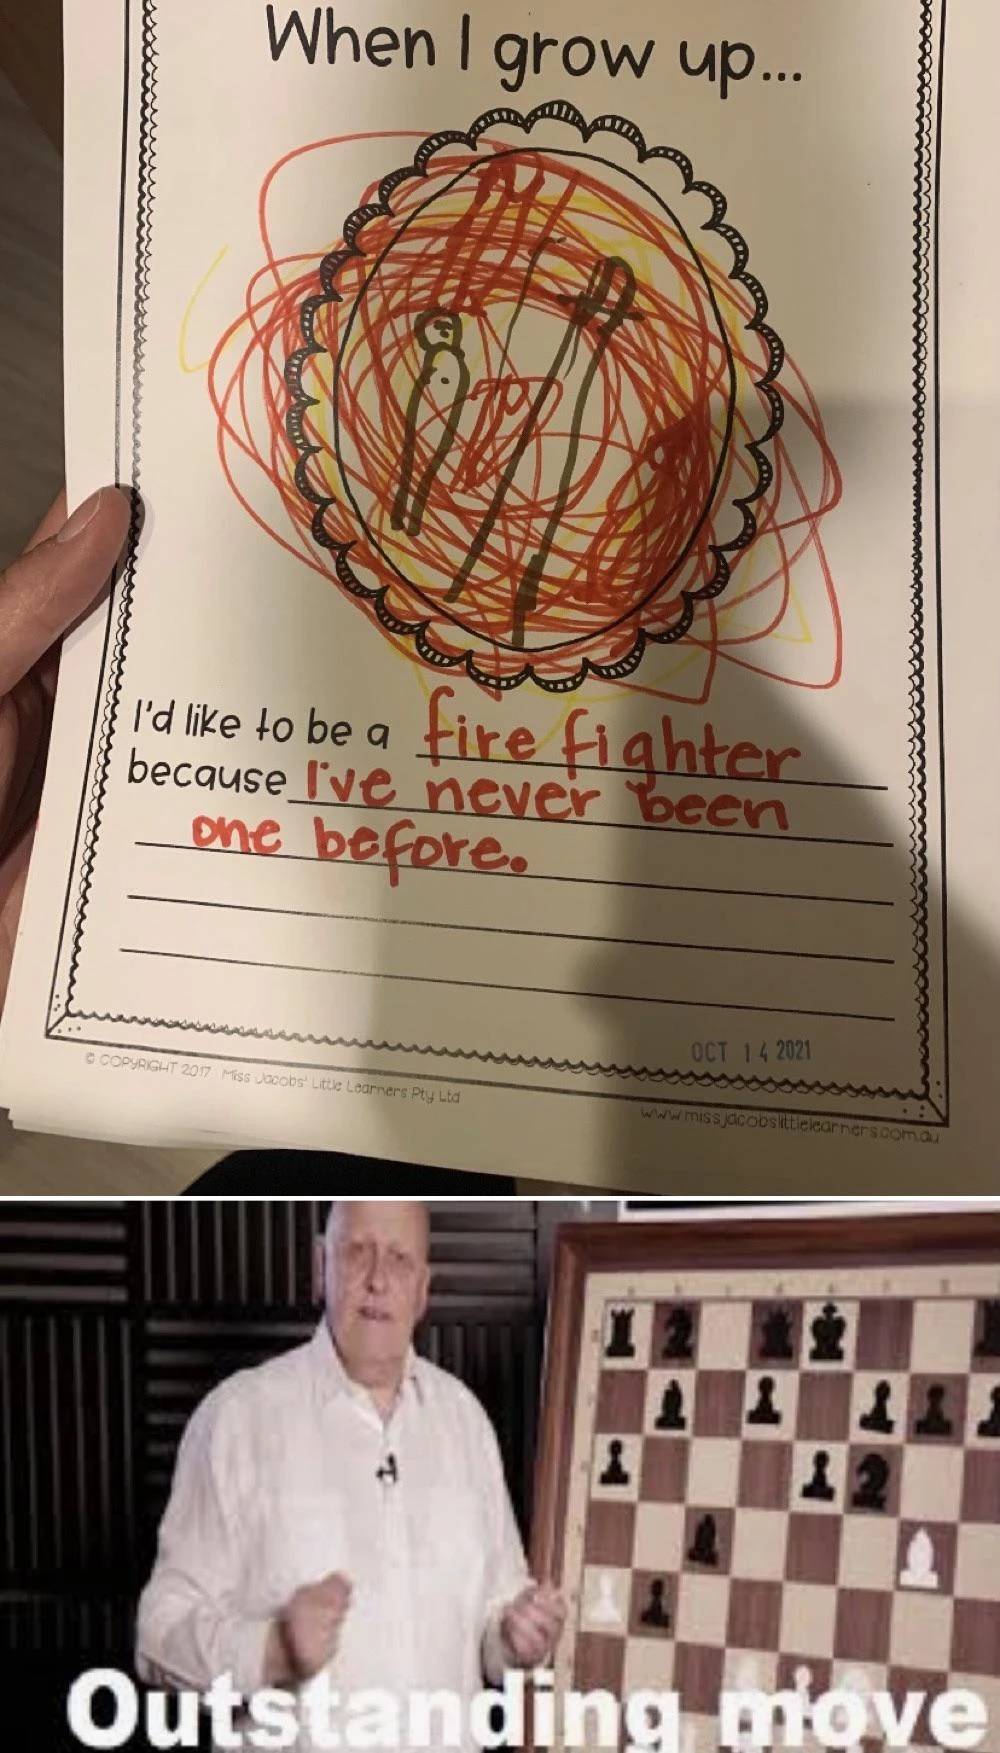 When I grow up...
I'd like to be a fire fighter
because I've never been
one before.
OCT 14 2021
© COPYRIGHT 2017 Miss Jacobs' Little Learners Pty Ltd
www.missjacobslittlelearners.com.au
Outstanding move